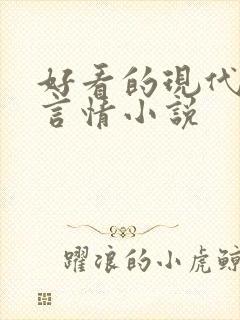 好看的現代
言情小説
躍浪的小虎鯨